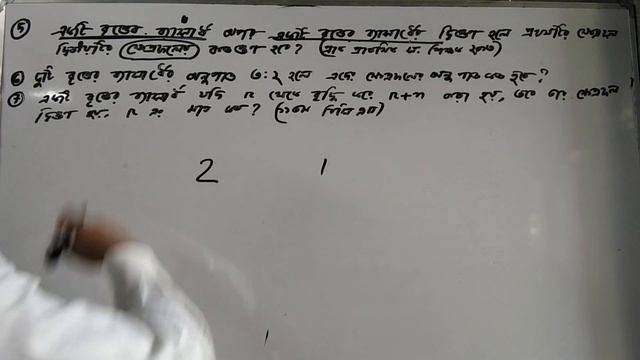 ⑤ একটি বৃত্তের ব্যাসার্ধ অন্য একটি বৃত্তের ব্যাসার্ধের দ্বিগুণ হলে প্রথমটির ক্ষেত্রফল
দ্বিতীয়টির ক্ষেত্রফলের কতগুণ হবে?
⑥ দুটি বৃত্তের ব্যাসার্ধের অনুপাত ৩:২ হলে এদের ক্ষেত্রফলের অনুপাত কত হবে?
⑦ একটি বৃত্তের ব্যাসার্ধ যদি r থেকে বৃদ্ধি করে r+n করা হয়, তবে তার ক্ষেত্রফল
দ্বিগুণ হয়. r এর মান কত?
2 1